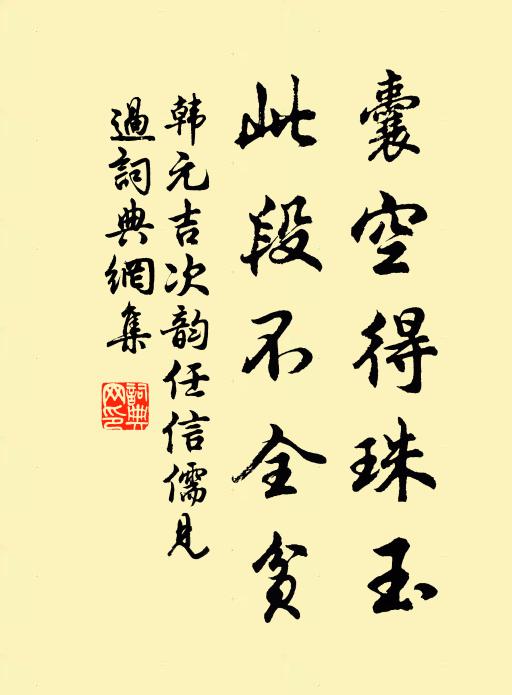 囊空得珠玉
此段不全貧
韩元吉次韵任信儒見
過詞典網集
詞典
网印